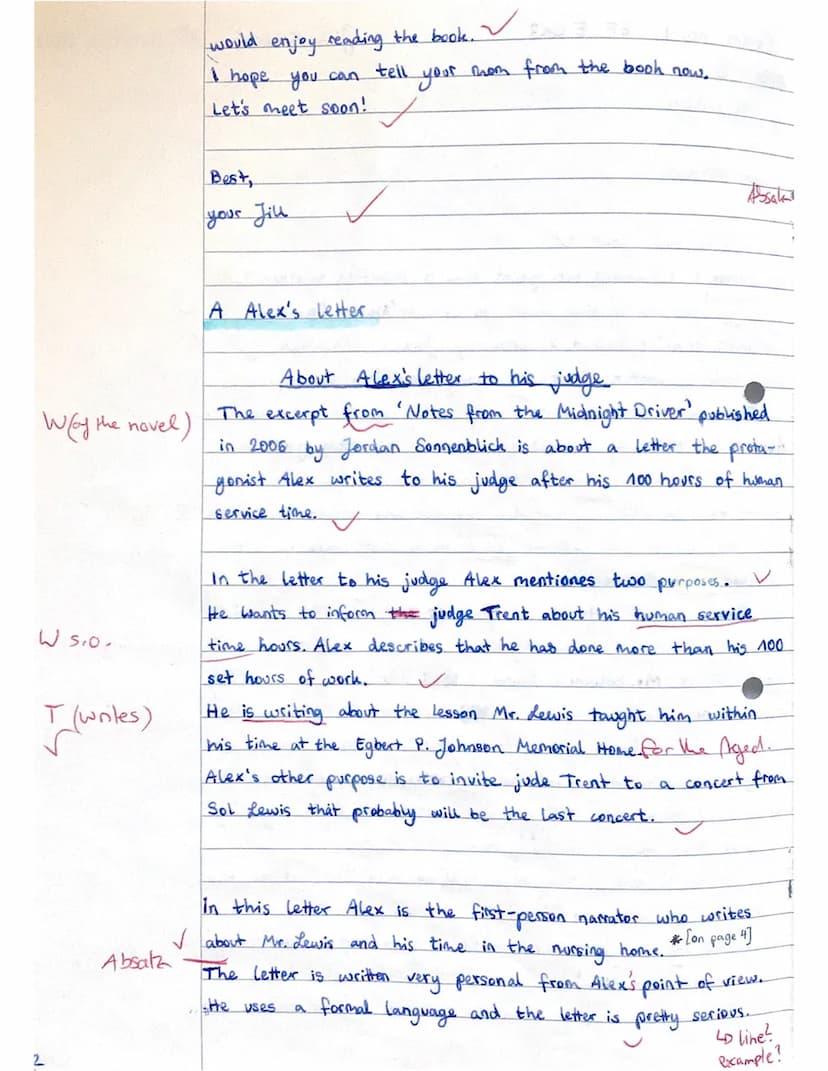 would enjoy reading the book.
I hope you can tell your mom from the book now.
Let's meet soon!
Best,
Absatz
your Jill
A Alex's letter
About Alex's letter to his judge
W (of the novel) The excerpt from 'Notes from the Midnight Driver' published
in 2006 by Jordan Sonnenblick is about a letter the prota-
gonist Alex writes to his judge after his 100 hours of human
service time.
In the letter to his judge Alex mentiones two purposes.
He wants to inform the judge Trent about his human service
W s.o. time hours. Alex describes that he has done more than his 100
set hours of work.
T (writes) He is writing about the lesson Mr. Lewis taught him within
his time at the Egbert P. Johnson Memorial Home for the Aged.
Alex's other purpose is to invite jude Trent to a concert from
Sol Lewis that probably will be the last concert.
In this letter Alex is the first-person narrator who writes
about Mr. Lewis and his time in the nursing home. * [on page 4]
Absatz The letter is written very personal from Alex's point of view.
He uses a formal language and the letter is pretty serious.
↳ line?
example?
2